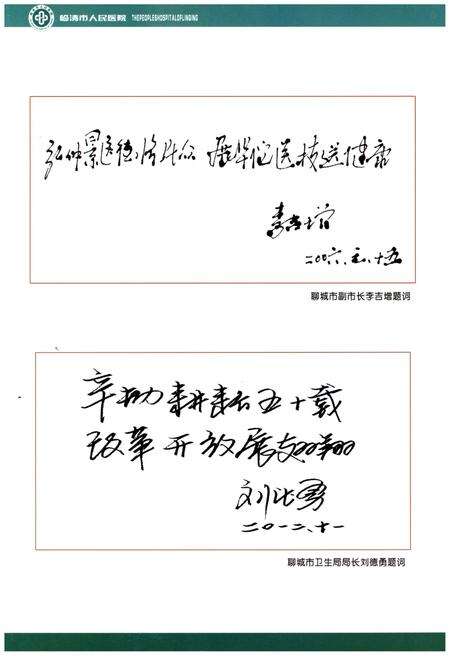 临清市人民医院 THEPEOPLESHOSPITALOFLINQING
弘仲景医德济生众 展华佗医技送健康
李吉增
二〇〇六.元.十五
聊城市副市长李吉增题词
辛勤耕耘五十载
改革开放展翅翔
刘德勇
二〇一二.十一
聊城市卫生局局长刘德勇题词